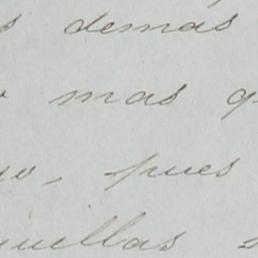 s demás
mas q
, pues
uellas s